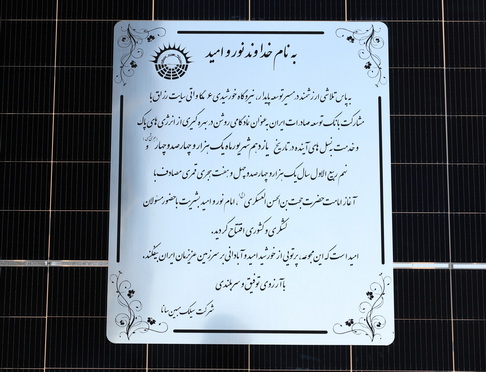 به نام خداوند نور و امید
به پاس تلاشی ارزشمند در مسیر توسعه پایدار، نیروگاه خورشیدی ۶ مگاواتی سایت رزلق با
مشارکت بانک توسعه صادرات ایران به عنوان گامی روشن در بهره گیری از انرژی های پاک
و خدمت به نسل های آینده در تاریخ یازدهم شهریور ماه یک هزار و چهارصد و چهار و
نهم ربیع الاول سال یک هزار و چهارصد و چهل و هفت هجری قمری مصادف با
آغاز امامت حضرت حجت بن الحسن العسکری، امام نور و امید بشریت با حضور مسئولان
لشگری و کشوری افتتاح گردید.
امید است که این مجموعه، پرتویی از خورشید امید و آبادانی بر سرزمین عزیزمان ایران بیفکند.
با آرزوی توفیق و سربلندی
شرکت سیلک مبین سانا